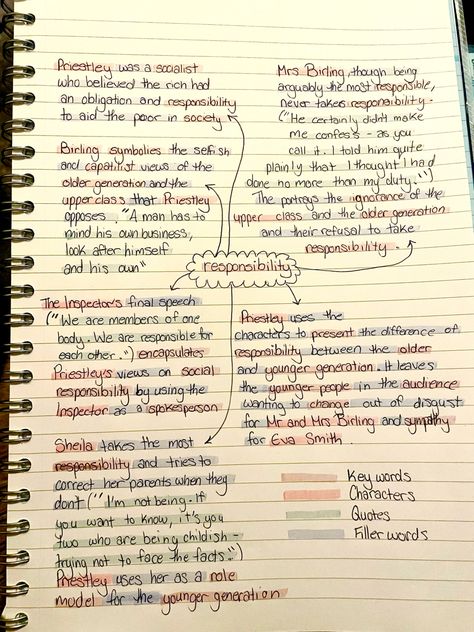 Priestley was a socialist
who believed the rich had
an obligation and responsibility
to aid the poor in society
Birling symbolies the selfish
and capatilist views of the
older generation and the
upper class that Priestley
opposes. "A man has to
mind his own business,
look after himself
and his own"
Mrs Birling, though being
arguably the most responsible,
never takes responsibility.
("He certainly didn't make
me confess - as you
call it. I told him quite
plainly that I thought I had
done no more than my duty.")
The portrays the ignorance of the
upper class and the older generation
and their refusal to take
responsibility.
responsibility
The Inspector's final speech
("We are members of one
body. We are responsible for
each other.") encapsulates
Priestley's views on social
responsibility by using the
Inspector as a spokesperson
Priestley uses the
characters to present the difference of
responsibility between the older
and younger generation. It leaves
the younger people in the audience
wanting to change out of disgust
for Mr and Mrs Birling and sympathy
for Eva Smith.
Sheila takes the most
responsibility and tries to
correct her parents when they
dont ("I'm not being. If
you want to know, it's you
two who are being childish -
trying not to face the facts.")
Priestley uses her as a role
model for the younger generation
Key words
Characters
Quotes
Filler words